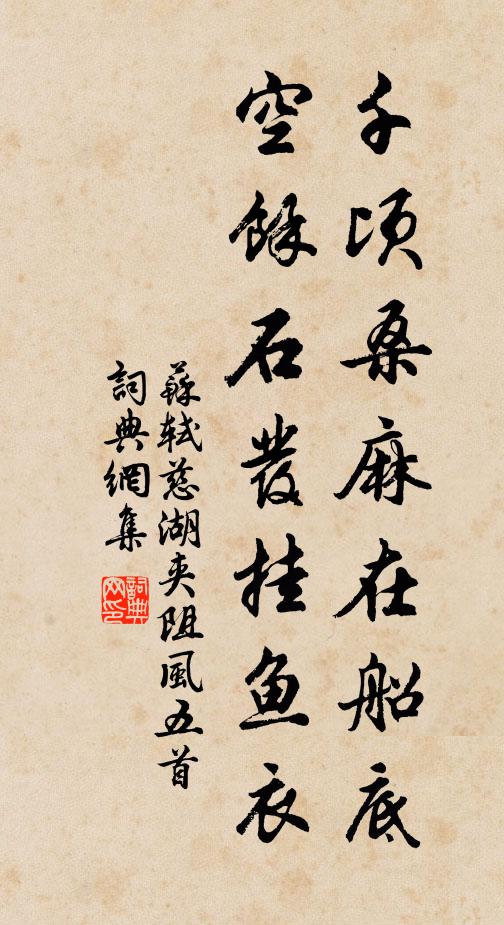 千頃桑麻在船底
空餘石發挂鱼衣
蘇軾慈湖夾阻風五首
詞典網集
詞典网印